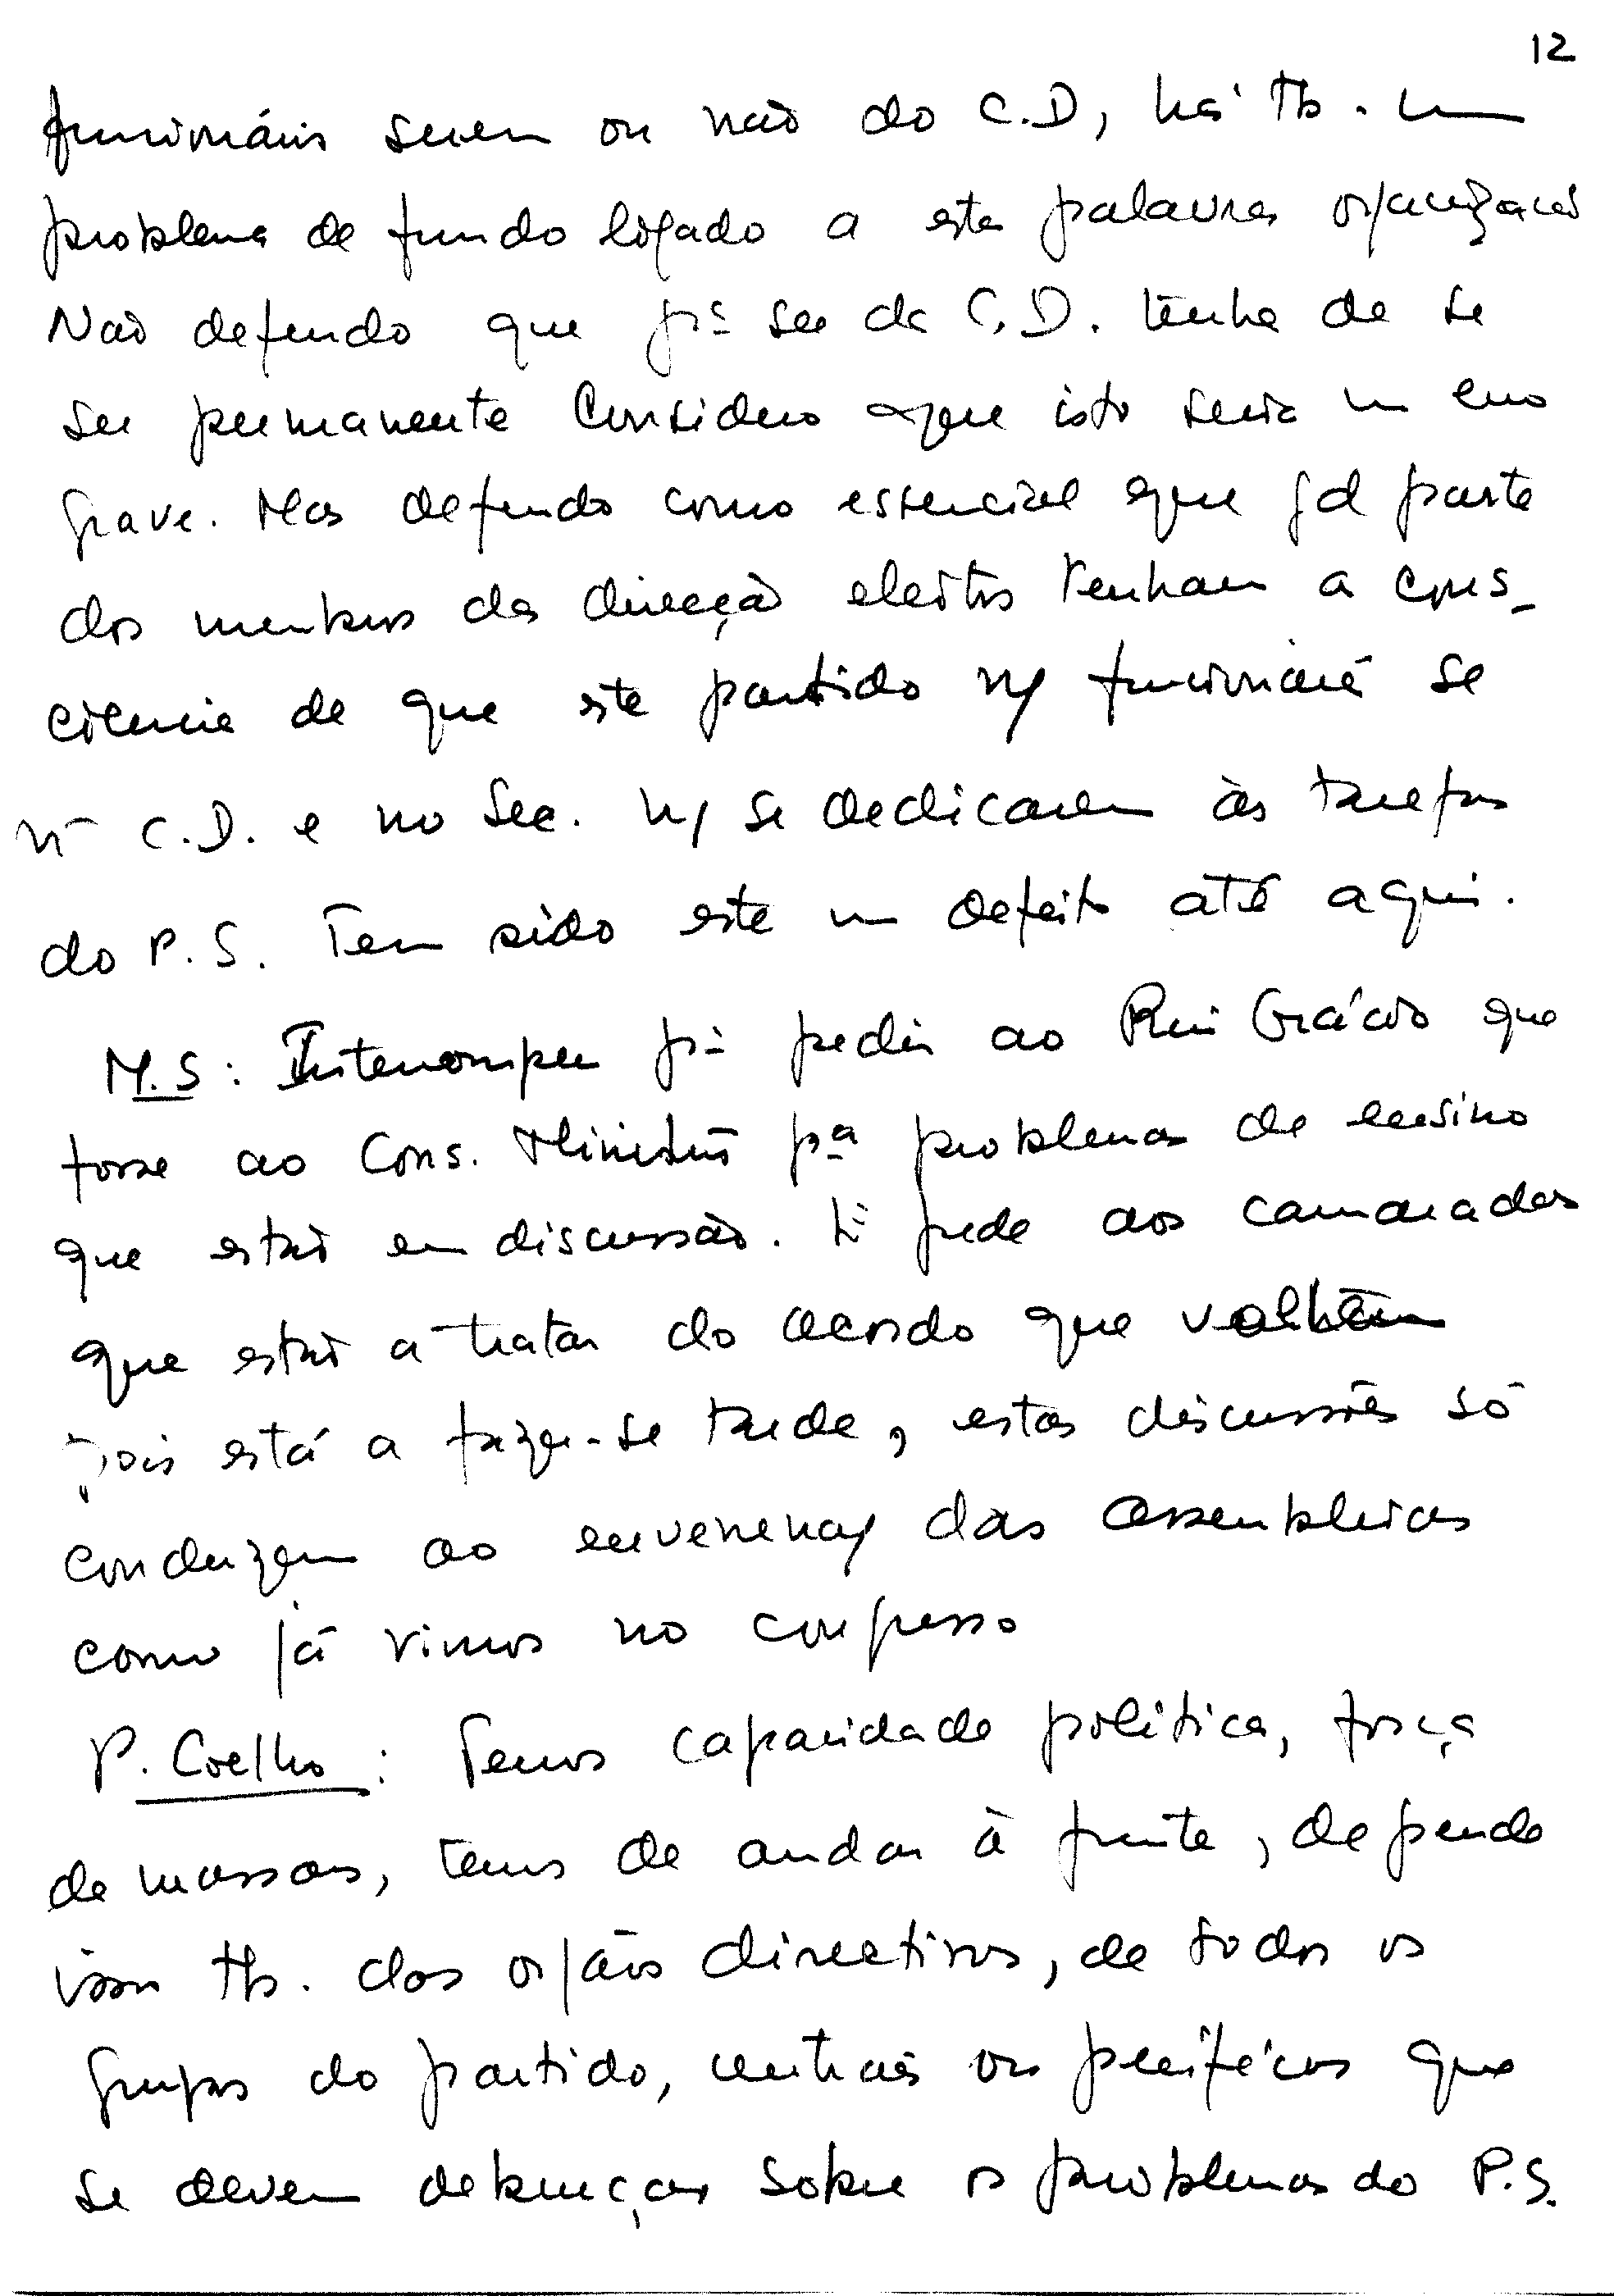 12
funcionários serem ou não do C.D, há tb. um
problema de fundo ligado a esta palavra organização
Não defendo que pª ser da C.D. tenha de se
ser permanente Considero que isto seria um erro
grave. Mas defendo como essencial que gd parte
dos membros da direcção eleitos tenham a cons-
ciencia de que este partido ñ funcionará se
C.D. e no Sec. ñ se dedicarem às tarefas
do P.S. Tem sido este um defeito até aqui.
M.S: Interrompeu pª pedir ao Rui Grácio que
fosse ao Cons. Ministros pª problemas de ensino
que estão em discussão. pede aos camaradas
que estão a tratar do acordo que voltem
pois está a fazer-se tarde, estas discussões só
conduzem ao das assembleias
como já vimos no congresso
P. Coelho: Temos capacidade política, força
de massas, temos de andar à frente, depende
isso tb. dos orgãos directivos, de todos os
grupos do partido, centrais ou periféricos que
se devem debruçar sobre os problemas do P.S.